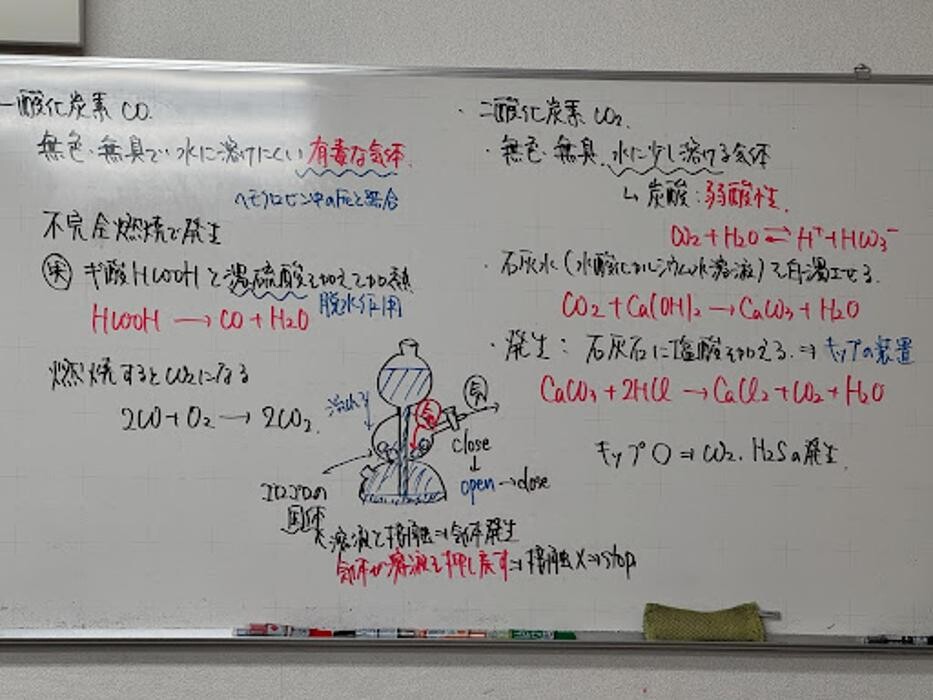 一酸化炭素 CO.
無色・無臭で、水に溶けにくい有毒な気体.
ヘモグロビン中のFeと結合
不完全燃焼で発生
ギ酸 HCOOHと濃硫酸を加えて加熱
脱水作用
HCOOH → CO + H2O
燃焼するとCO2になる
2CO + O2 → 2CO2.
・二酸化炭素 CO2.
・無色・無臭. 水に少し溶ける気体
↳ 炭酸：弱酸性.
CO2 + H2O ⇄ H⁺ + HCO3⁻
・石灰水(水酸化カルシウム水溶液)を白濁させる.
CO2 + Ca(OH)2 → CaCO3 + H2O
・発生：石灰石に塩酸を加える. ⇒ キップの装置
CaCO3 + 2HCl → CaCl2 + CO2 + H2O
キップ○ ⇒ CO2. H2Sの発生.
気
気
close
↓
open → close
固体
溶液と接触⇒気体発生
気体が溶液を押し戻す⇒接触×⇒stop